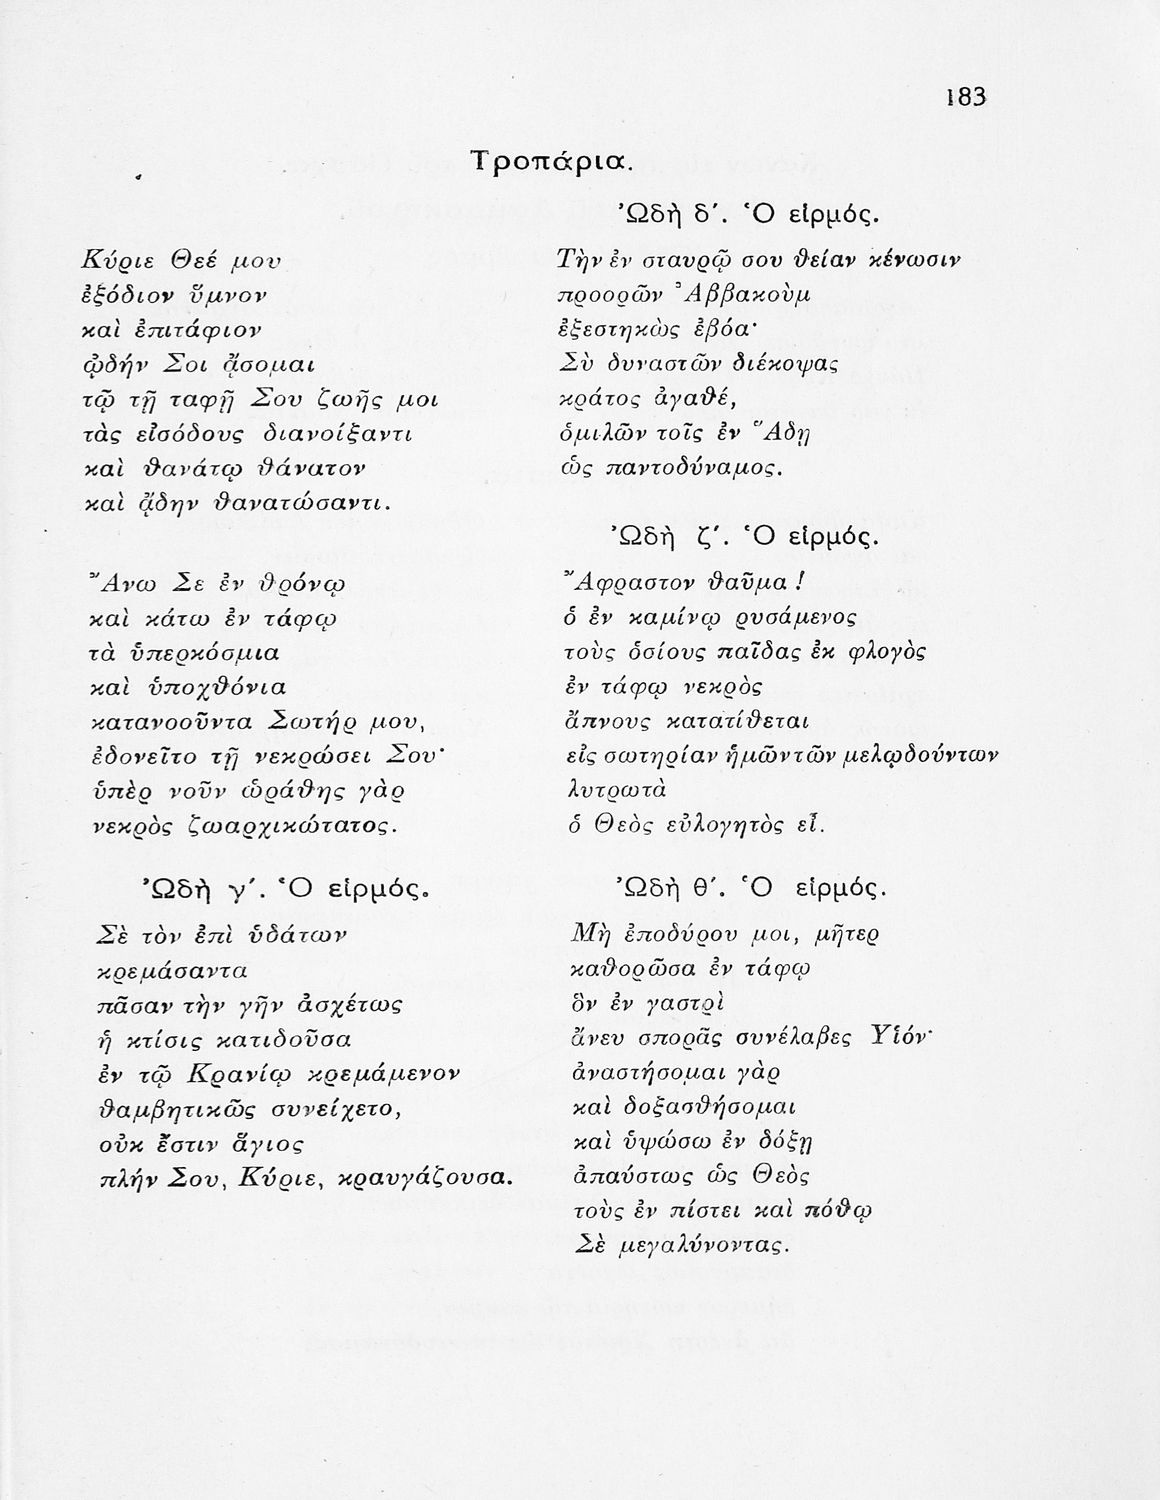 183
Τροπάρια.
Κύριε Θεέ μου
ἐξόδιον ὕμνον
καὶ ἐπιτάφιον
ᾠδήν Σοι ᾄσομαι
τῷ τῇ ταφῇ Σου ζωῆς μοι
τὰς εἰσόδους διανοίξαντι
καὶ θανάτῳ θάνατον
καὶ ᾅδην θανατώσαντι.
Ἄνω Σε ἐν θρόνῳ
καὶ κάτω ἐν τάφῳ
τὰ ὑπερκόσμια
καὶ ὑποχθόνια
κατανοοῦντα Σωτήρ μου,
ἐδονεῖτο τῇ νεκρώσει Σου·
ὑπὲρ νοῦν ὡράθης γὰρ
νεκρὸς ζωαρχικώτατος.
Ὠδὴ γ΄. Ὁ εἱρμός.
Σὲ τὸν ἐπὶ ὑδάτων
κρεμάσαντα
πᾶσαν τὴν γῆν ἀσχέτως
ἡ κτίσις κατιδοῦσα
ἐν τῷ Κρανίῳ κρεμάμενον
θαμβητικῶς συνείχετο,
οὐκ ἔστιν ἅγιος
πλήν Σου, Κύριε, κραυγάζουσα.
Ὠδὴ δ΄. Ὁ εἱρμός.
Τὴν ἐν σταυρῷ σου θείαν κένωσιν
προορῶν Ἀββακοὺμ
ἐξεστηκὼς ἐβόα·
Σὺ δυναστῶν διέκοψας
κράτος ἀγαθέ,
ὁμιλῶν τοῖς ἐν Ἅδῃ
ὡς παντοδύναμος.
Ὠδὴ ζ΄. Ὁ εἱρμός.
Ἄφραστον θαῦμα!
ὁ ἐν καμίνῳ ρυσάμενος
τοὺς ὁσίους παῖδας ἐκ φλογὸς
ἐν τάφῳ νεκρὸς
ἄπνους κατατίθεται
εἰς σωτηρίαν ἡμῶν τῶν μελῳδούντων
λυτρωτὰ
ὁ Θεὸς εὐλογητὸς εἶ.
Ὠδὴ θ΄. Ὁ εἱρμός.
Μὴ ἐποδύρου μοι, μῆτερ
καθορῶσα ἐν τάφῳ
ὃν ἐν γαστρὶ
ἄνευ σπορᾶς συνέλαβες Υἱόν·
ἀναστήσομαι γὰρ
καὶ δοξασθήσομαι
καὶ ὑψώσω ἐν δόξῃ
ἀπαύστως ὡς Θεὸς
τοὺς ἐν πίστει καὶ πόθῳ
Σὲ μεγαλύνοντας.